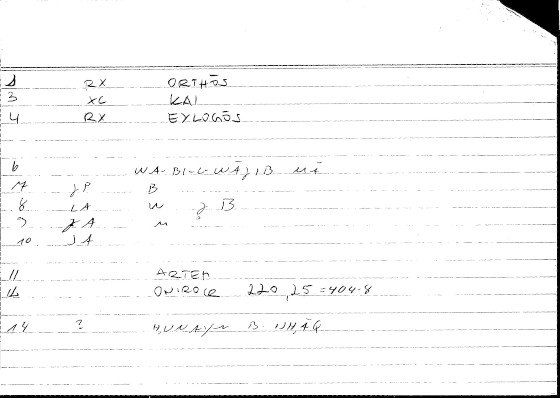 1 RX ORTHŌS
3 XC KAI
4 RX EYLOGŌS
6 WA-BI-L-WĀǦIB MĀ
7 JP B
8 LA W ǧ B
9 JA M
10 JA
11 ARTEM
12 ONIROCR 220,25=404.8
14 ? ḤUNAYN B. ISḤĀQ